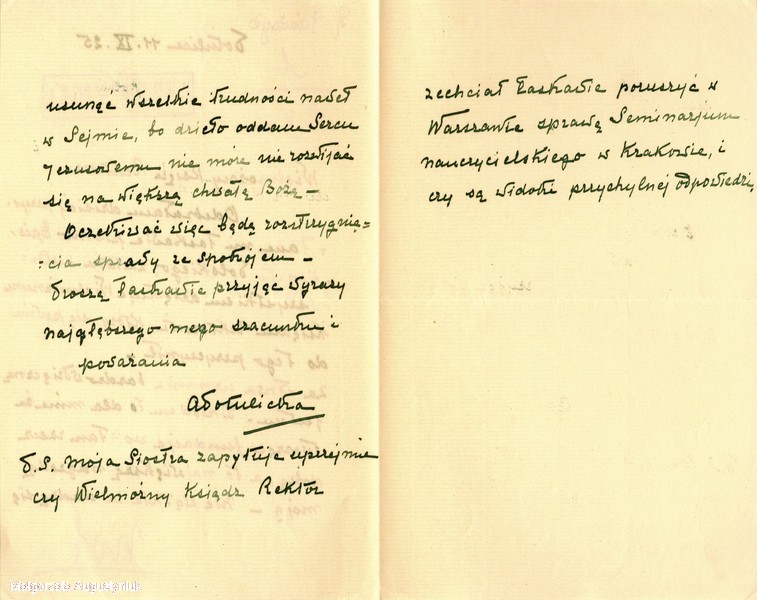 usunąć wszelkie trudności nawet
w Sejmie, bo dzieło oddane Sercu
Jezusowemu nie może nie rozwijać
się na większą chwałę Bożą –
Oczekiwać więc będę rozstrzygnię=
=cia sprawy ze spokojem –
Proszę łaskawie przyjąć wyrazy
najgłębszego mego szacunku i
poważania
APotulicka
P.S. Moja Siostra zapytuje uprzejmie
czy Wielmożny Ksiądz Rektor
zechciał łaskawie poruszyć w
Warszawie sprawę Seminarjum
nauczycielskiego w Krakowie, i
czy są widoki przychylnej odpowiedzi,